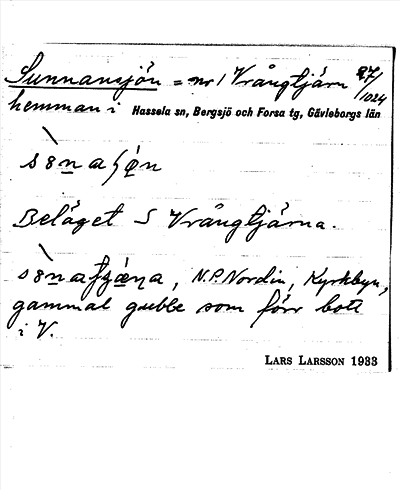 Sunnansjön = nr 1 Vrångtjärn 27/1024
hemman i Hassela sn, Bergsjö och Forsa tg, Gävleborgs län
Beläget S Vrångtjärna.
N.P. Nordin, Kyrkbyn,
gammal gubbe som förr bott
i V.
LARS LARSSON 1933